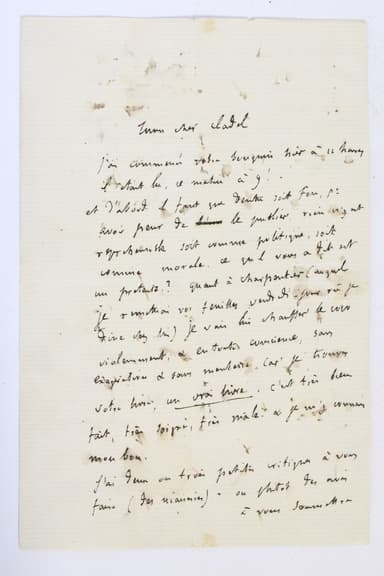 mon cher Cladel
j'ai commencé votre bouquin hier à 11 heures
il était lu, ce matin à 9!
et d'abord il faut que Dentu soit fou, pr
avoir peur de le publier rien n'y est
répréhensible soit comme politique, soit
comme morale. ce qu'il vous a dit est
un prétexte? Quant à Charpentier (auquel
je remettrai vos feuilles vendredi - jour où je
dîne chez lui) je vais lui chauffer le coco
violemment, & en toute conscience, sans
exagération & sans menterie. Car je trouve
votre livre, un vrai livre. C'est très bien
fait, très soigné, très mâle. & je m'y connais
mon bon.
j'ai deux ou trois petites critiques à vous
faire (des niaiseries) - ou plutôt des avis
à vous soumettre